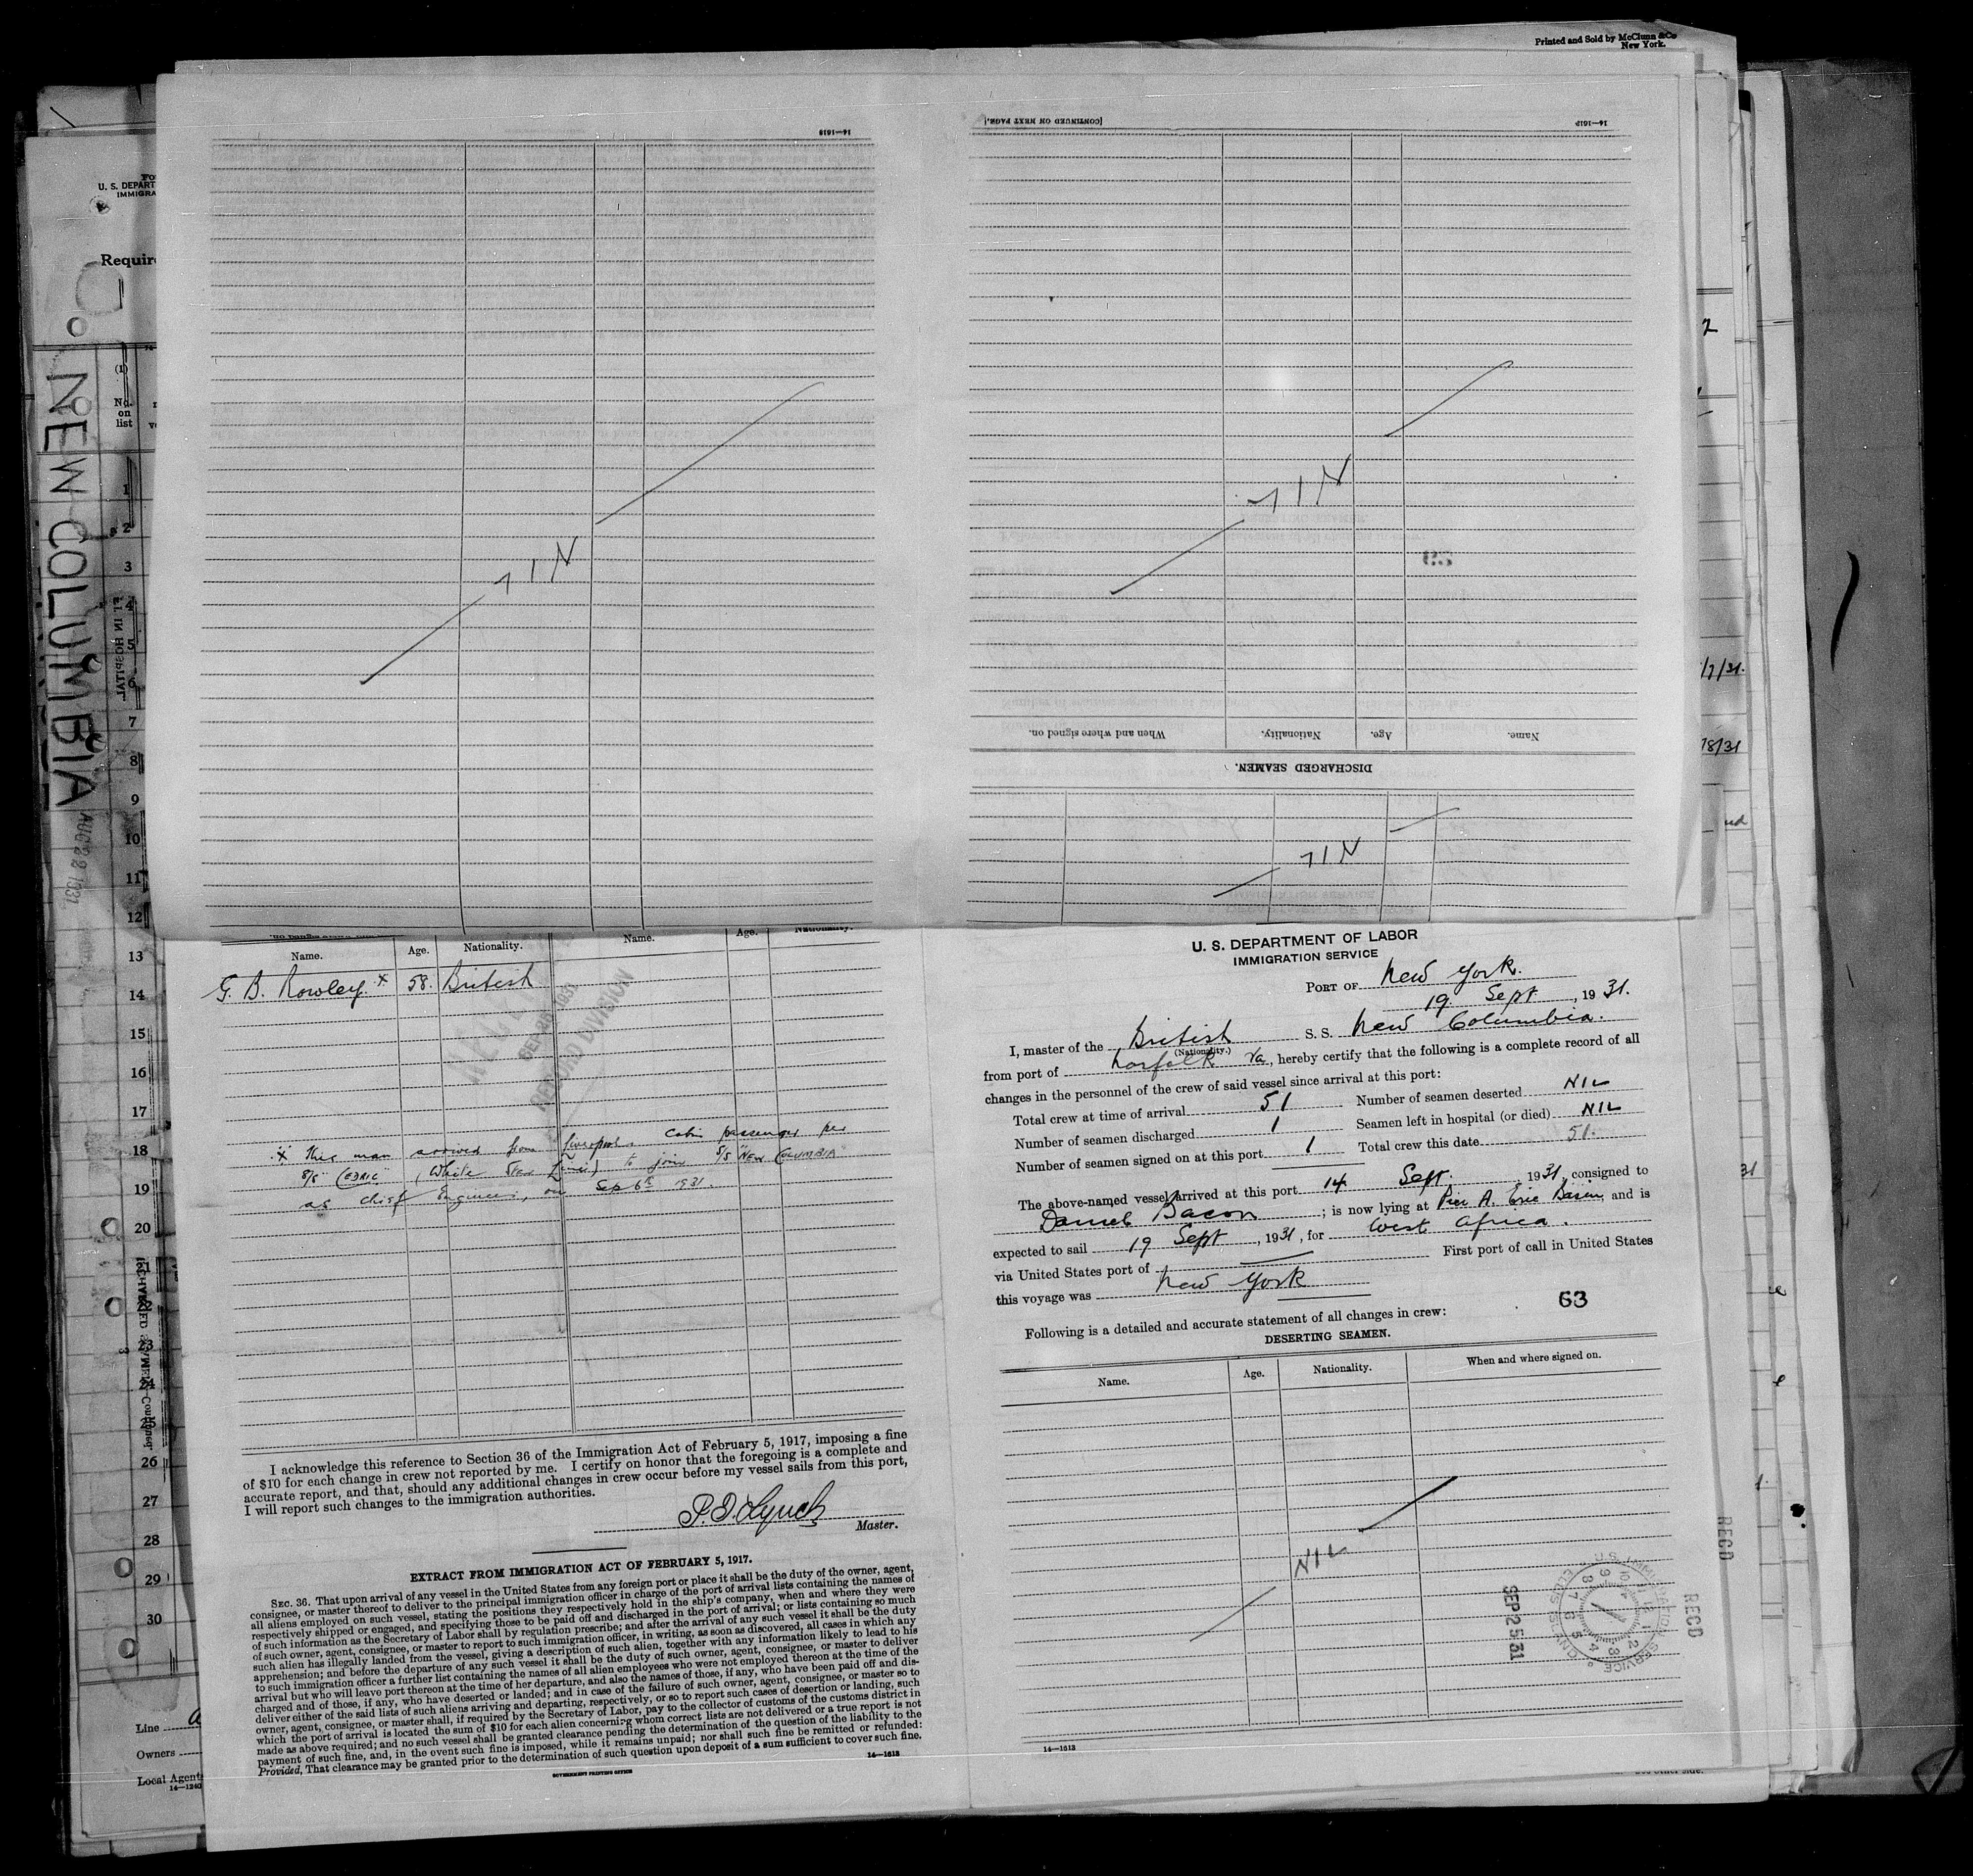 Printed and Sold by McClunn & Co
New York.
U. S. DEPART
IMMIGRA
Require
NEW COLUMBIA
AUG 22 1931
(1)
No.
on
list
1
2
3
4
5
6
7
8
9
10
11
12
13
14
15
16
17
18
19
20
21
22
23
24
25
26
27
28
29
30
Line
Owners
Local Agent
14—1240
14—1613
NIL
[CONTINUED ON NEXT PAGE.]
NIL
Name. Age. Nationality. When and where signed on.
DISCHARGED SEAMEN.
NIL
Name. Age. Nationality. Name. Age. Nationality.
G. B. Rowley x 58. British
RECORD DIVISION
x This man arrived from Liverpool. Cabin passenger per
S/S "CEDRIC" (White Star Line) to join S/S "NEW COLUMBIA"
as chief Engineer, on Sep 6th 1931.
I acknowledge this reference to Section 36 of the Immigration Act of February 5, 1917, imposing a fine
of $10 for each change in crew not reported by me. I certify on honor that the foregoing is a complete and
accurate report, and that, should any additional changes in crew occur before my vessel sails from this port,
I will report such changes to the immigration authorities.
Lynch
Master.
EXTRACT FROM IMMIGRATION ACT OF FEBRUARY 5, 1917.
SEC. 36. That upon arrival of any vessel in the United States from any foreign port or place it shall be the duty of the owner, agent,
consignee, or master thereof to deliver to the principal immigration officer in charge of the port of arrival lists containing the names of
all aliens employed on such vessel, stating the positions they respectively hold in the ship's company, when and where they were
respectively shipped or engaged, and specifying those to be paid off and discharged in the port of arrival; or lists containing so much
of such information as the Secretary of Labor shall by regulation prescribe; and after the arrival of any such vessel it shall be the duty
of such owner, agent, consignee, or master to report to such immigration officer, in writing, as soon as discovered, all cases in which any
such alien has illegally landed from the vessel, giving a description of such alien, together with any information likely to lead to his
apprehension; and before the departure of any such vessel it shall be the duty of such owner, agent, consignee, or master to deliver
to such immigration officer a further list containing the names of all alien employees who were not employed thereon at the time of the
arrival but who will leave port thereon at the time of her departure, and also the names of those, if any, who have been paid off and dis-
charged and of those, if any, who have deserted or landed; and in case of the failure of such owner, agent, consignee, or master so to
deliver either of the said lists of such aliens arriving and departing, respectively, or so to report such cases of desertion or landing, such
owner, agent, consignee, or master shall, if required by the Secretary of Labor, pay to the collector of customs of the customs district in
which the port of arrival is located the sum of $10 for each alien concerning whom correct lists are not delivered or a true report is not
made as above required; and no such vessel shall be granted clearance pending the determination of the question of the liability to the
payment of such fine, and, in the event such fine is imposed, while it remains unpaid; nor shall such fine be remitted or refunded:
Provided, That clearance may be granted prior to the determination of such question upon deposit of a sum sufficient to cover such fine.
14—1613
GOVERNMENT PRINTING OFFICE
U. S. DEPARTMENT OF LABOR
IMMIGRATION SERVICE
PORT OF New York.
19 Sept, 1931.
I, master of the British S. S. New Columbia.
(Nationality.)
from port of Norfolk Va, hereby certify that the following is a complete record of all
changes in the personnel of the crew of said vessel since arrival at this port:
Total crew at time of arrival 51 Number of seamen deserted NIL
Number of seamen discharged 1 Seamen left in hospital (or died) NIL
Number of seamen signed on at this port 1 Total crew this date 51.
The above-named vessel arrived at this port 14 Sept., 1931, consigned to
Daniel Bacon; is now lying at Pier A. Erie Basin, and is
expected to sail 19 Sept, 1931, for West Africa.
via United States port of First port of call in United States
this voyage was New York
63
Following is a detailed and accurate statement of all changes in crew:
DESERTING SEAMEN.
Name. Age. Nationality. When and where signed on.
NIL
SEP 25 31
U.S. IMMIGRATION SERVICE
ELLIS ISLAND
RECD
RECD
14—1613